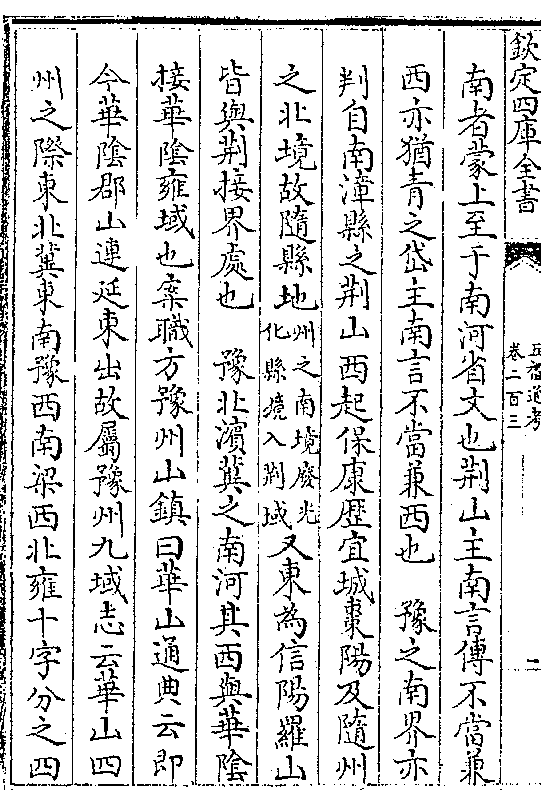 欽定四庫全書
五禮通考
卷二百三
二
南者蒙上至于南河省文也荆山主南言傳不當兼
西亦猶青之岱主南言不當兼西也　豫之南界亦
判自南漳縣之荆山西起保康歴宜城棗陽及隨州
之北境故隨縣地州之南境廢光化縣境入荆域又東為信陽羅山
皆與荆接界處也　豫北濱冀之南河其西與華陰
接華陰雍域也案職方豫州山鎮曰華山通典云即
今華陰郡山連延東出故屬豫州九域志云華山四
州之際東北冀東南豫西南梁西北雍十字分之四